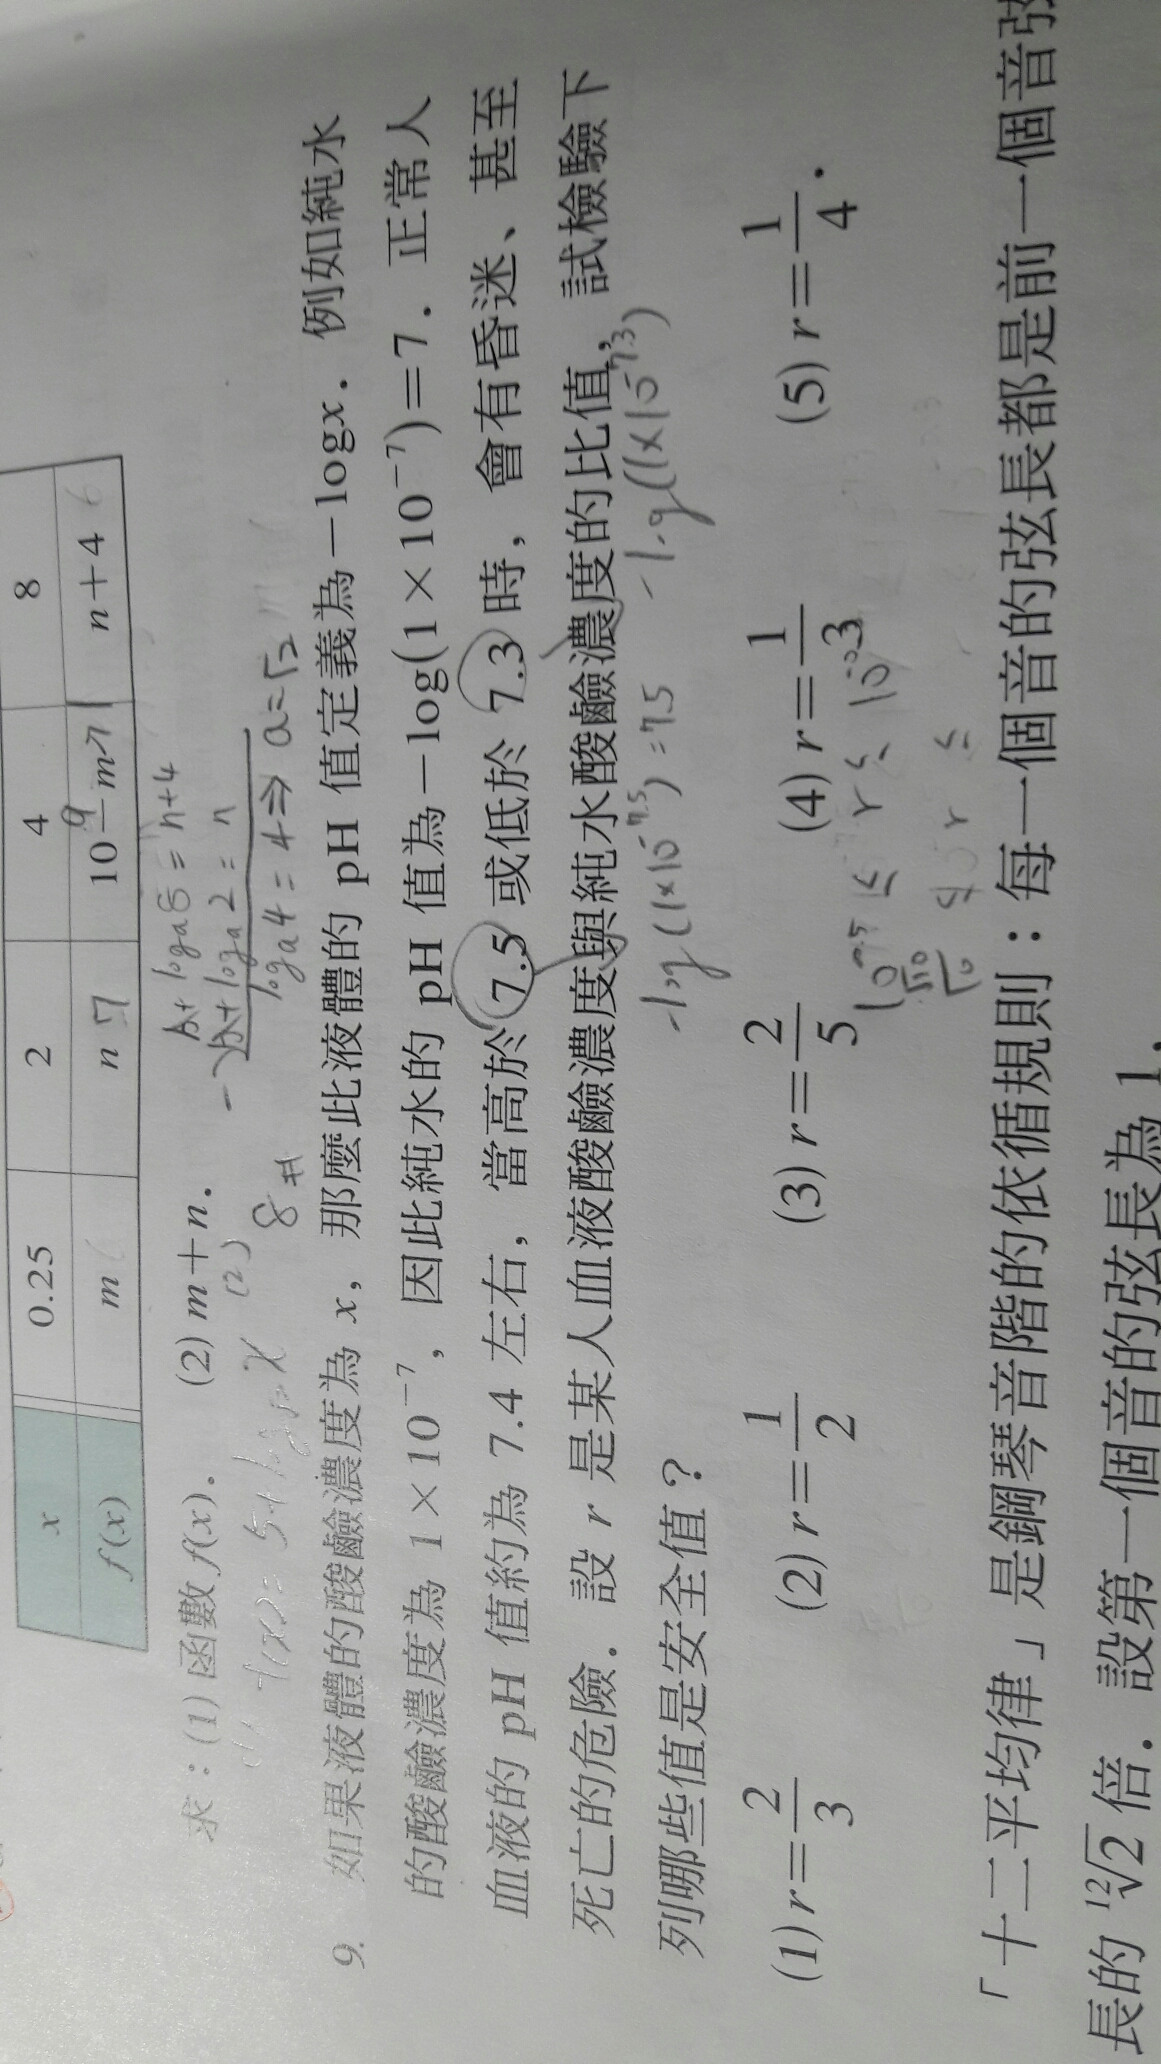 x 0.25 2 4 8
f(x) m n 7 10-m 9 n+4 6
求：(1)函數f(x)． (2) m+n．
(2) 8
f(x)=5+log
+loga8=n+4
loga2=n
loga4=4⇒a=√2
9. 如果液體的酸鹼濃度為 x，那麼此液體的 pH 值定義為－logx．例如純水
的酸鹼濃度為 1×10⁻⁷，因此純水的 pH 值為－log(1×10⁻⁷)=7．正常人
血液的 pH 值約為 7.4 左右，當高於 7.5 或低於 7.3 時，會有昏迷、甚至
死亡的危險．設 r 是某人血液酸鹼濃度與純水酸鹼濃度的比值，試檢驗下
列哪些值是安全值？
-log(1×10^-7.5)=7.5 -log(1×10^-7.3)
(1) r=2/3 (2) r=1/2 (3) r=2/5 (4) r=1/3 (5) r=1/4．
≤ r ≤
≤ r ≤
「十二平均律」是鋼琴音階的依循規則：每一個音的弦長都是前一個音弦
長的 ¹²√2 倍．設第一個音的弦長為 1，